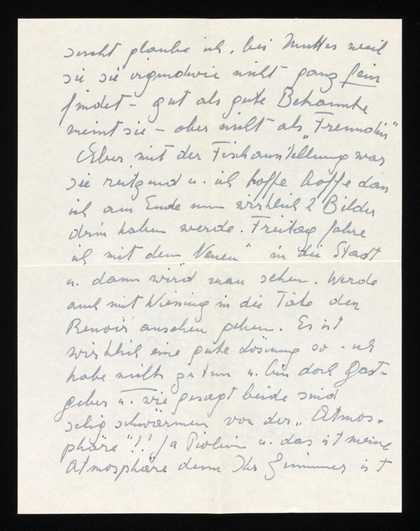 sucht glaube ich, bei Mutter weil
sie sie irgendwie nicht ganz fein
findet – gut als gute Bekannte
meint sie – aber nicht als „Freundin"
Aber mit der Ausstellung war
sie reizend u. ich hoffe hoffe dass
ich am Ende nun wirklich 2 Bilder
drin haben werde. Freitag fahre
ich mit dem „Neuen" in die Stadt
u. dann wird man sehen. Werde
auch mit in die Tate den
Renoir ansehen gehen. Es ist
wirklich eine gute Lösung so - ich
habe nichts zu tun u. bin doch Gast-
geber u. wie gesagt beide sind
selig schwärmen von der „Atmos-
phäre"!! ja u. das ist meine
Atmosphäre denn Ihr Zimmer ist